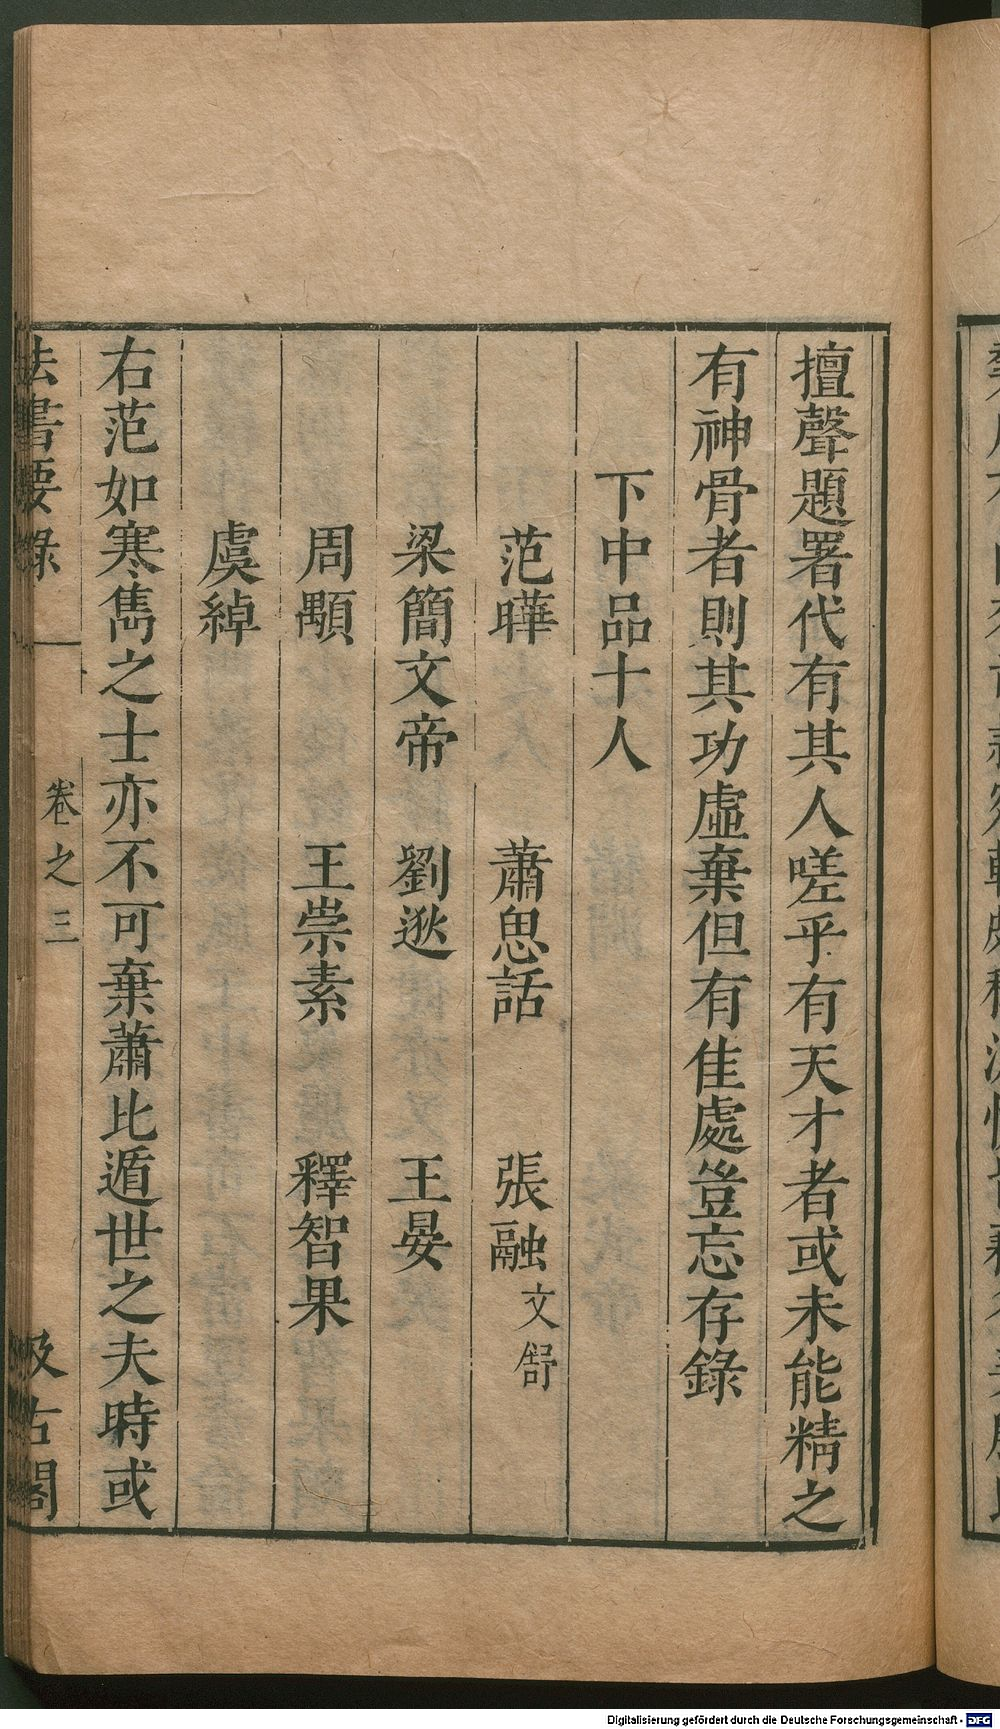 擅聲題署代有其人嗟乎有天才者或未能精之
有神骨者則其功虛棄但有佳處豈忘存錄
下中品十人
范曄 蕭思話 張融文舒
梁簡文帝 劉逖 王晏
周顒 王崇素 釋智果
虞綽
右范如寒雋之士亦不可棄蕭比遁世之夫時或
法書要錄 卷之三 汲古閣
Digitalisierung gefördert durch die Deutsche Forschungsgemeinschaft - DFG